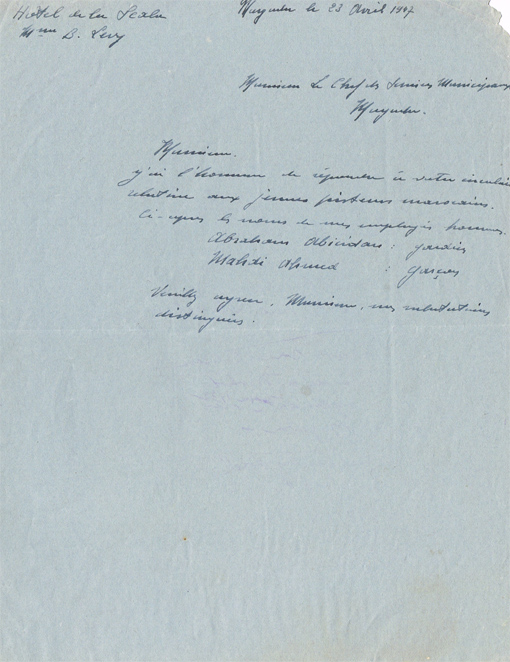 Hôtel de la Scala
Mme B. Levy
le 23 Avril 1947
Monsieur Le Chef des Services Municipaux
Monsieur.
j'ai l'honneur de répondre à votre circulaire
relative aux jeunes marocains.
Ci-après les noms de mes employés hommes.
Abraham Abicidan : gardien
Mahdi Ahmed : garçon
Veuillez agréer, Monsieur, mes salutations
distinguées.